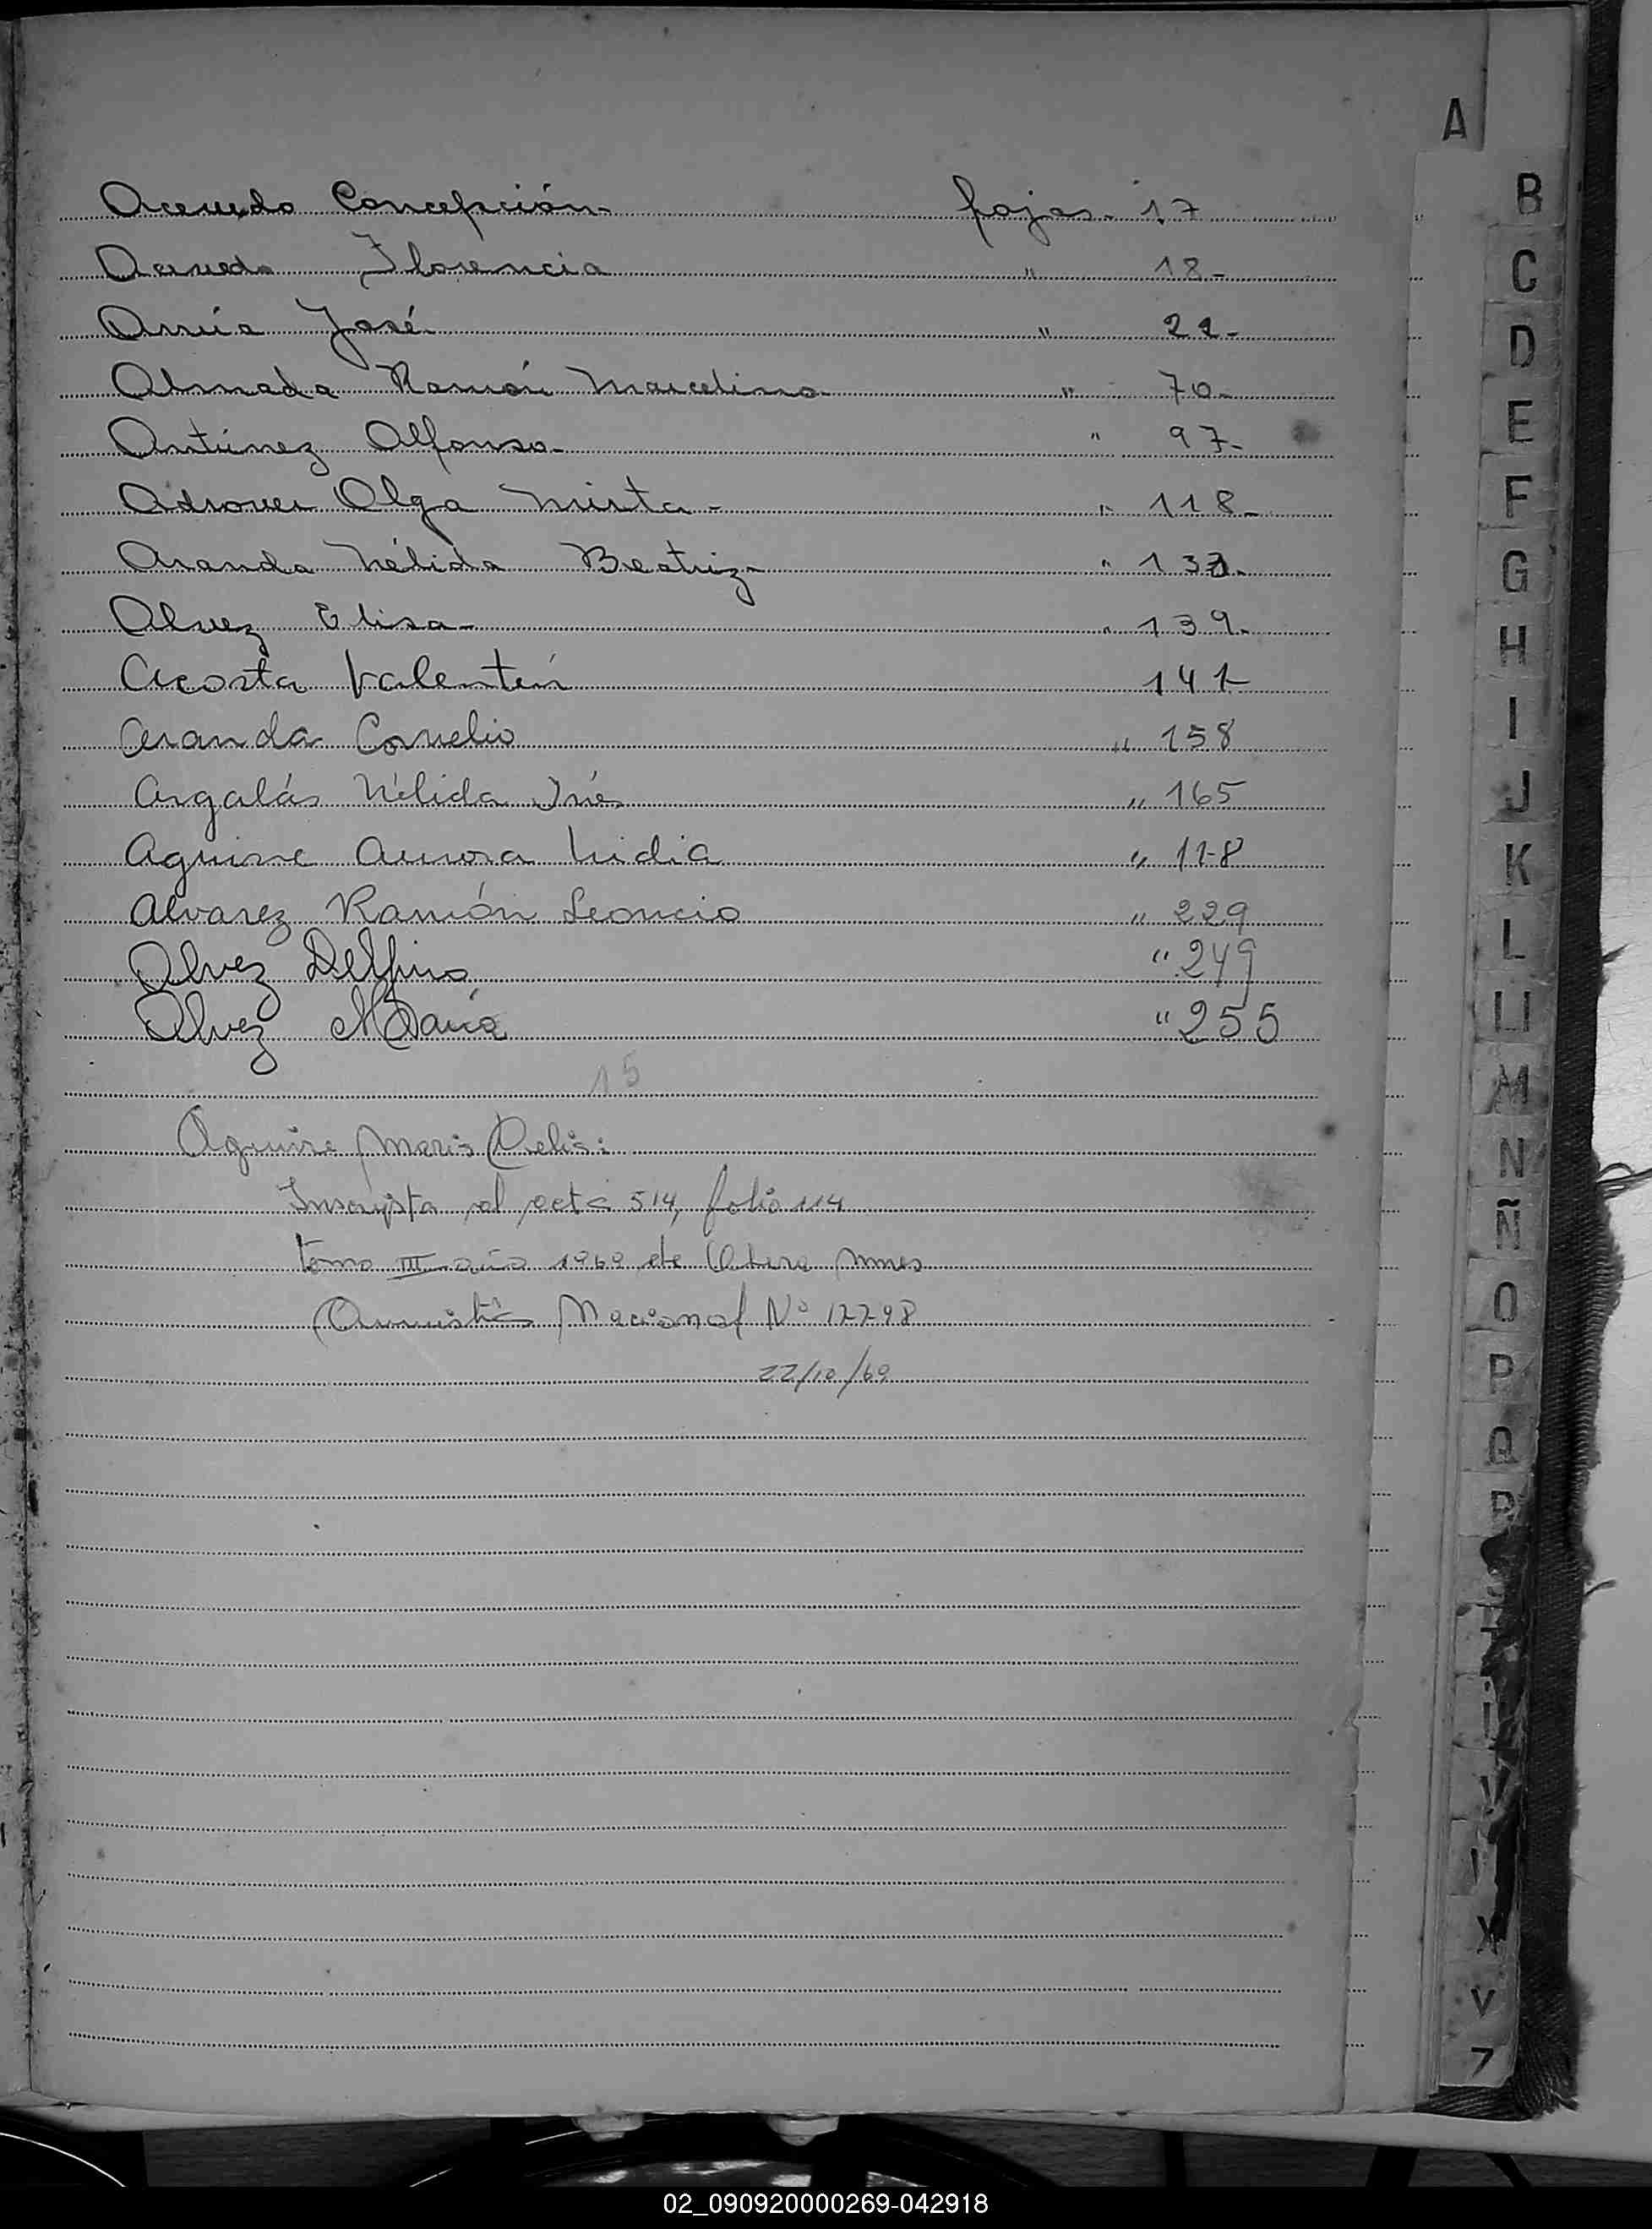 A
Acevedo Concepción- fojas- 17
Acevedo Florencia " 18-
José " 22-
Almada Ramón Marcelino " 70-
Antúnez Alfonso- " 97-
Adrover Olga Mirta- " 118-
Aranda Nélida Beatriz- "
Alvez Elisa- " 139-
Acosta Valentín 141-
Aranda Cornelio " 158
Argalás Nélida Inés " 165
Aguirre Aurora Lidia "
Alvarez Ramón Leoncio " 229
Alvez Delfino " 249
Alvez María " 255
15
Aguirre Maris Delis:
Inscripta al acta 514, folio 114
tomo III año 1969 de Obera Mnes
Amnistía Nacional Nº 17798
22/10/69
B
C
D
E
F
G
H
I
J
K
L
LL
M
N
Ñ
O
P
Q
R
V
X
Y
Z
02_090920000269-042918